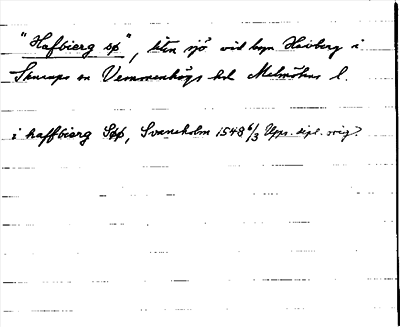 "Hafbierg sø", liten sjö vid byn Havberg i
Skurups sn Vemmenhögs hd Malmöhus l.
i haffbierg Søø, Svaneholm 1548 6/3 Upps. dipl. orig?